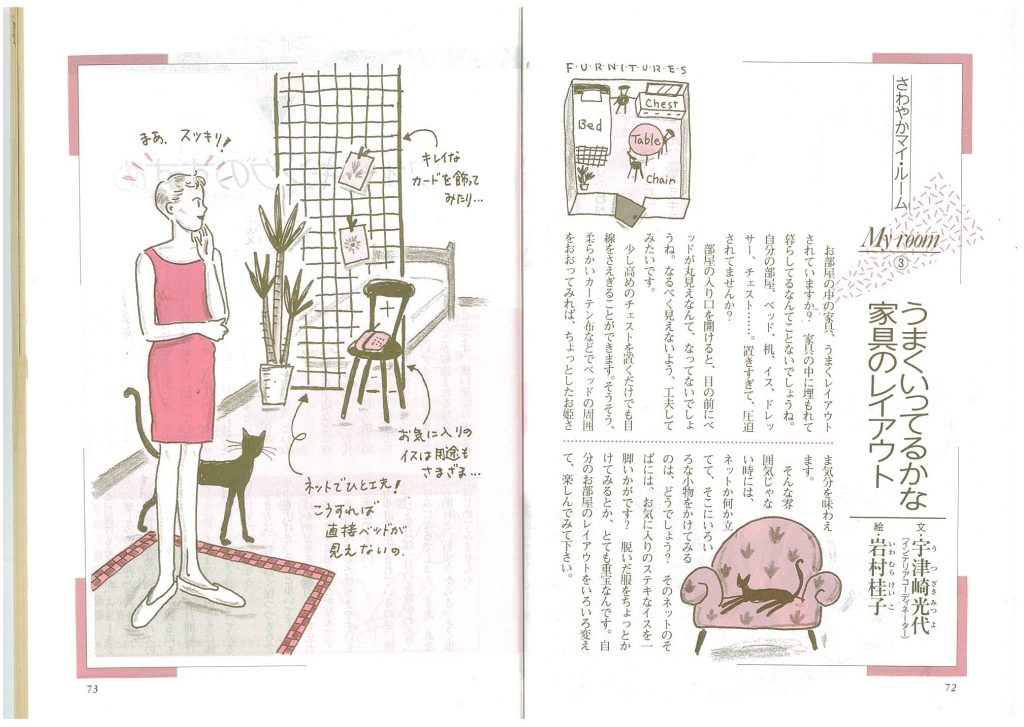 さわやかマイ・ルーム
My room
③
うまくいってるかな
家具のレイアウト
文・宇津崎光代
うつざきみつよ
(インテリアコーディネーター)
絵・岩村桂子
いわむらけいこ
F・U・R・N・I・T・U・R・E・S
Chest
Bed
Table
Chair
お部屋の中の家具、うまくレイアウト
されていますか? 家具の中に埋もれて
暮らしてるなんてことないでしょうね。
自分の部屋、ベッド、机、イス、ドレッ
サー、チェスト……。置きすぎて、圧迫
されてませんか?
部屋の入り口を開けると、目の前にベ
ッドが丸見えなんて、なってないでしょ
うね。なるべく見えないよう、工夫して
みたいです。
少し高めのチェストを置くだけでも目
線をさえぎることができます。そうそう、
柔らかいカーテン布などでベッドの周囲
をおおってみれば、ちょっとしたお姫さ
ま気分を味わえ
ます。
そんな雰
囲気じゃな
い時には、
ネットか何か立
てて、そこにいろい
ろな小物をかけてみる
のは、どうでしょう? そのネットのそ
ばには、お気に入りのステキなイスを一
脚いかがです? 脱いだ服をちょっとか
けてみるとか、とても重宝なんです。自
分のお部屋のレイアウトをいろいろ変え
て、楽しんでみて下さい。
72
まぁ、スッキリ!
キレイな
カードを飾って
みたり…
お気に入りの
イスは用途も
さまざま…
ネットでひと工夫!
こうすれば
直接ベッドが
見えないの.
73